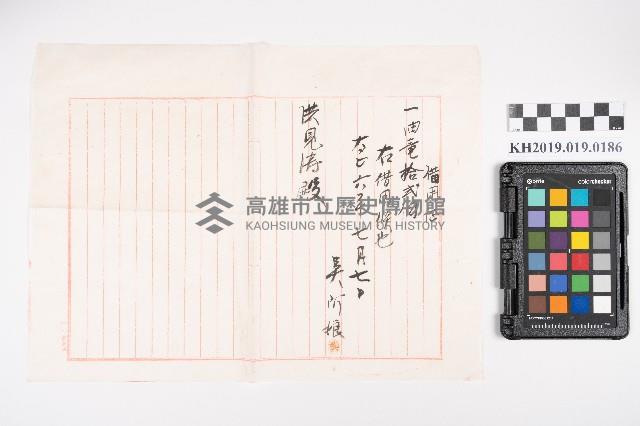 借用證
一 油壹拾弐
右借用候也
大正六年七月七日
吳 所 娘
洪見濤殿
高雄市立歷史博物館
KAOHSIUNG MUSEUM OF HISTORY
KH2019.019.0186
colorchecker